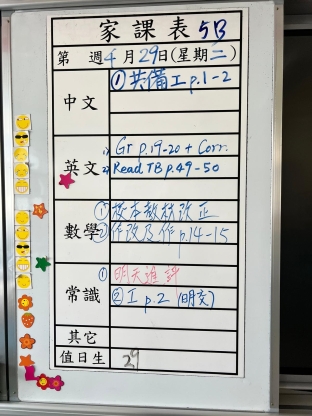 家課表 5B
第 週 4 月 29 日(星期二)
中文
① 共備工 p.1-2
英文
1) Gr p.19-20 + Corr.
2) Read TB p.49-50
數學
① 校本教材改正
② 作改及作 p.14-15
常識
① 明天進評
② 工 p.2 (明交)
其它
值日生 29